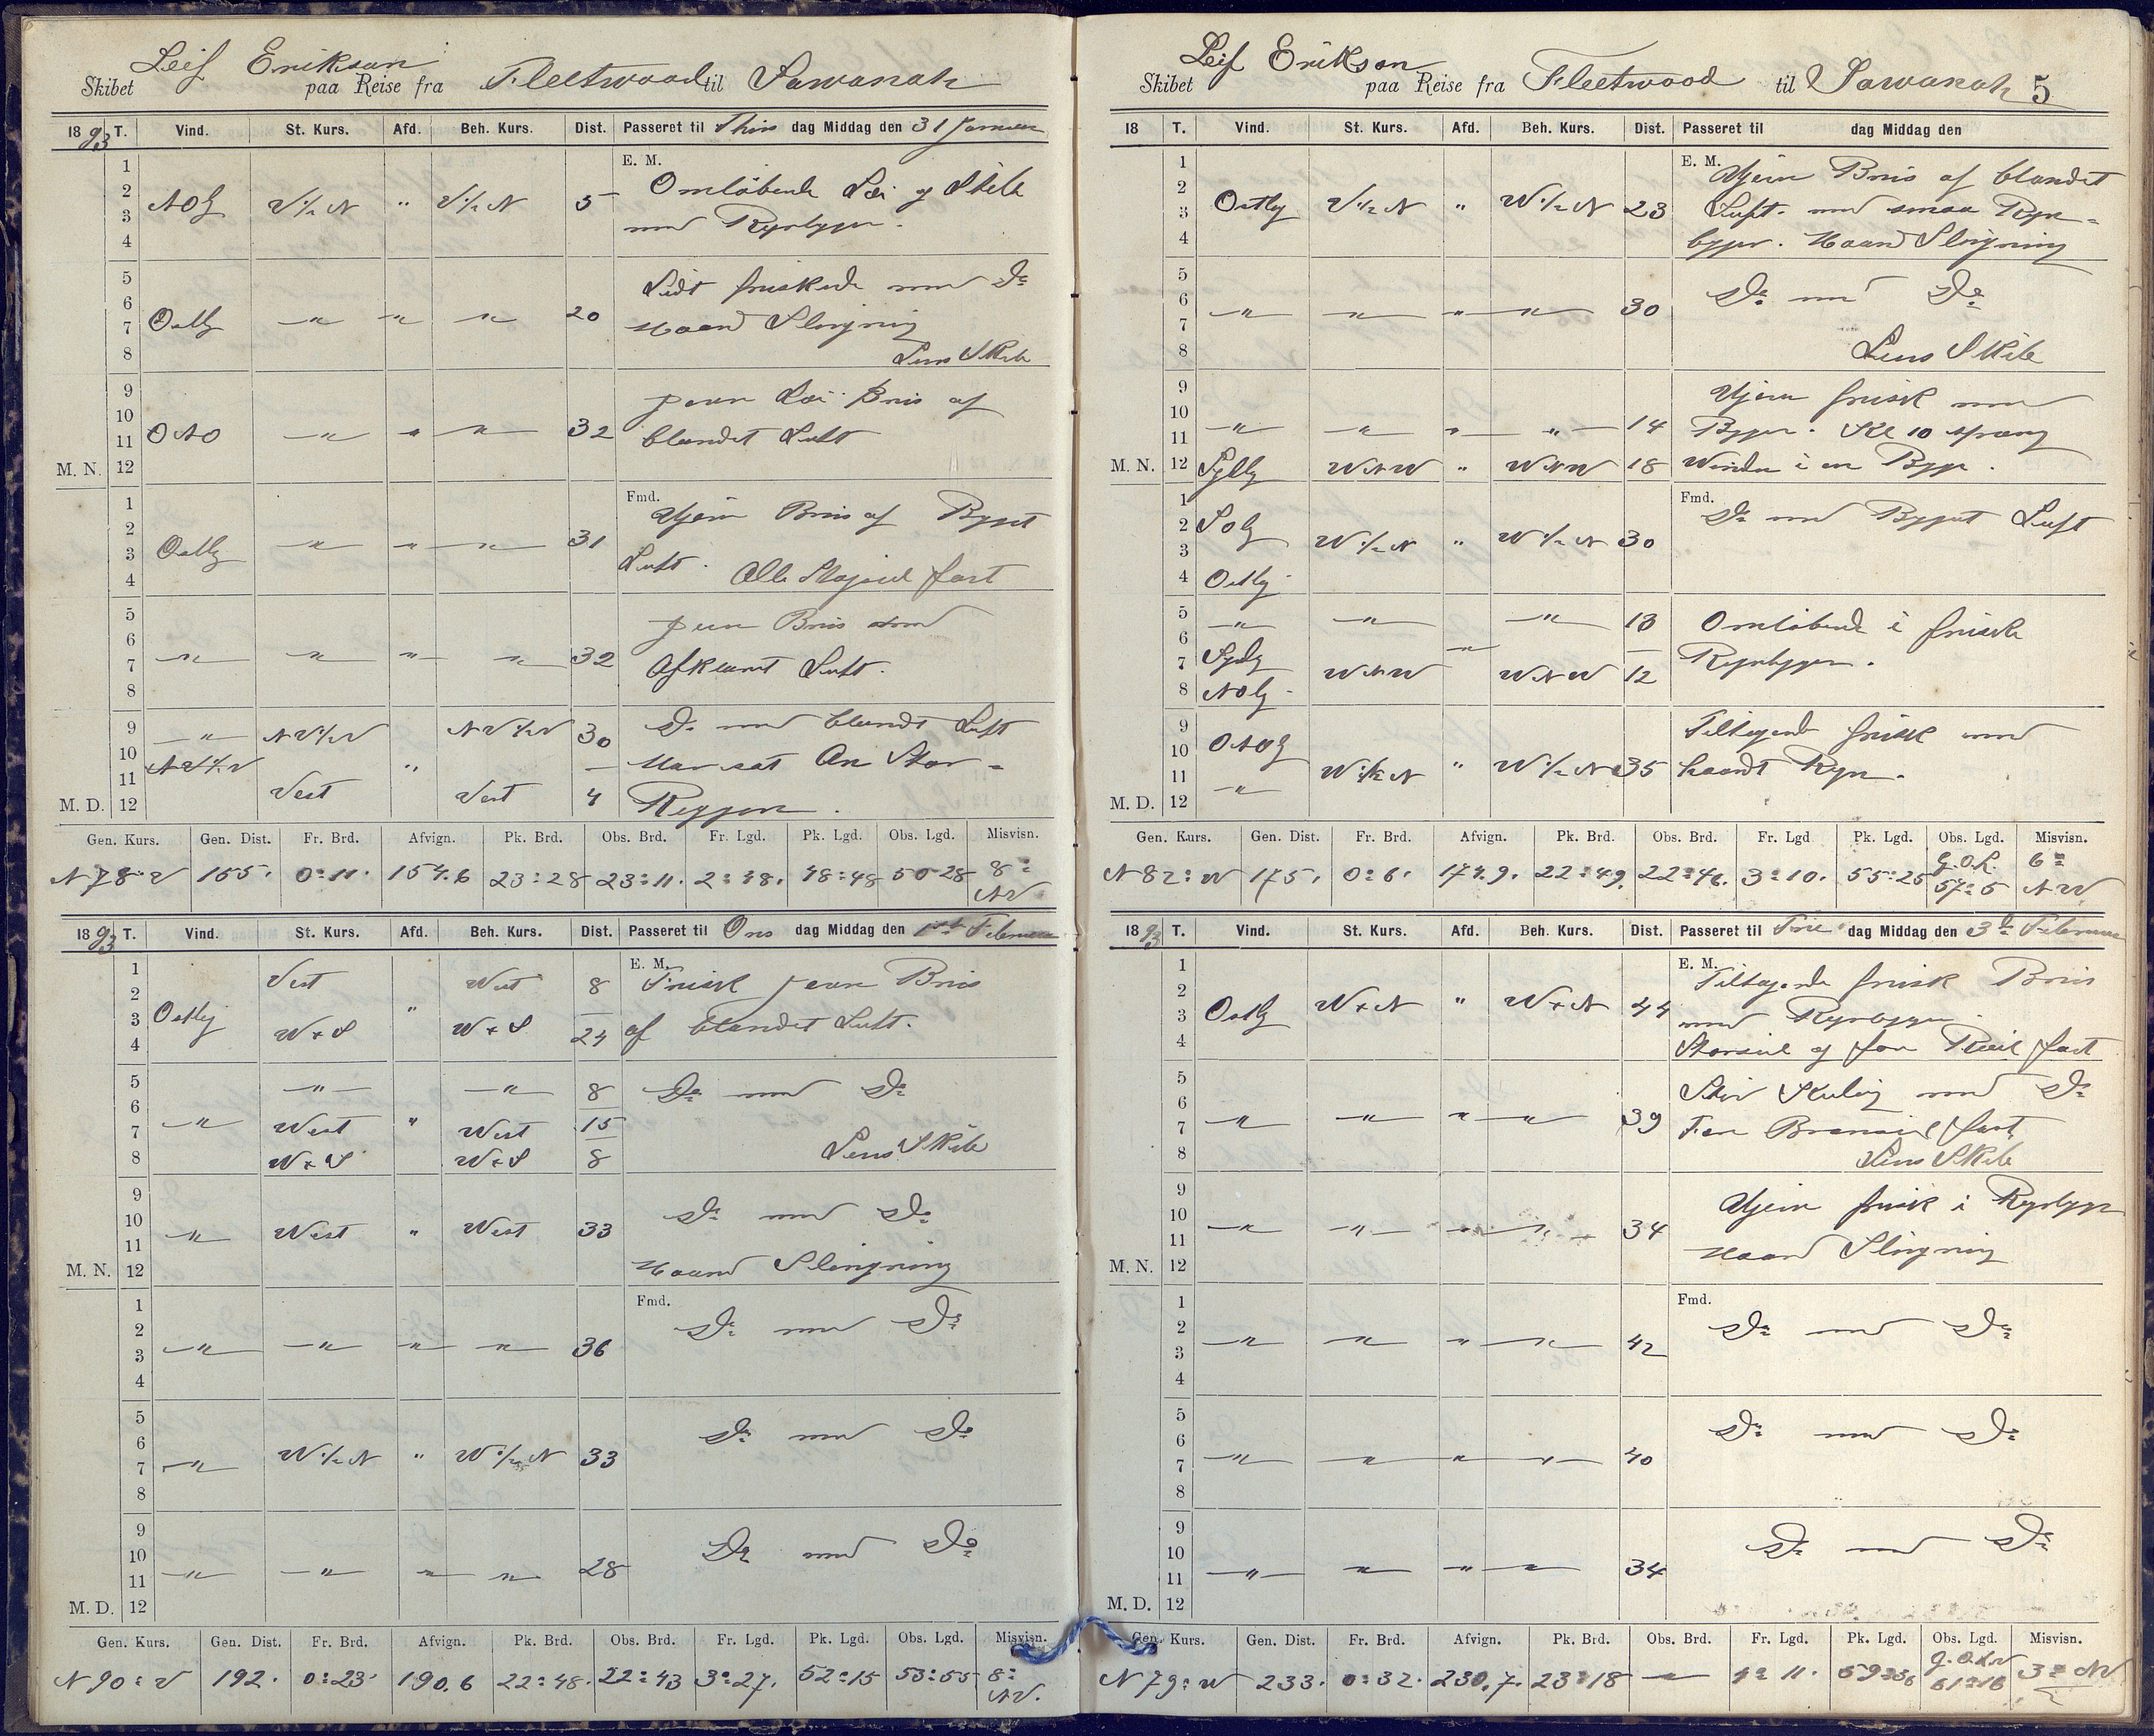 Leif Erikson
Skibet paa Reise fra Fleetwood til Savanah
18 93 T. Vind. St. Kurs. Afd. Beh. Kurs. Dist. Passeret til Thirs dag Middag den 31 Januar
1
2
3
4
E. M.
NOlg V½N " V½N 5
Omløbende Lei og Stille
med Regnbyger.
5
6
7
8
Ostlg " " " 20
Lidt friskede med Do
Haand Slingning
Lens Skib
9
10
11
M. N. 12
ONO " " " 32
Jevn Lei Bris af
blandet Luft
Fmd.
1
2
3
4
Ostlg " " " 31
Ujevn Bris af Byget
Luft. Alle Stagseil fast
5
6
7
8
" " " " 32
Jevn Bris med
afklaret Luft.
9
10
11
M. D. 12
" NV½V " NV½V 30
Vest Vest 4
Do med blandt Luft
Har sat An Stor-
Reggen.
Gen. Kurs. Gen. Dist. Fr. Brd. Afvign. Pk. Brd. Obs. Brd. Fr. Lgd. Pk. Lgd. Obs. Lgd. Misvisn.
N 78° V 155. 0°11. 154.6 23°28 23°11. 2°48. 48°48 50°28 8°
NV
18 93 T. Vind. St. Kurs. Afd. Beh. Kurs. Dist. Passeret til Ons dag Middag den 1st Februar
1
2
3
4
E. M.
Vest West 8
Ostlig W+S " W+S 24
Frisk Jevn Bris
af blandet Luft.
5
6
7
8
" " 8
" West " West 15
W+S W+S 8
Do med Do
Lens Skib
9
10
11
M. N. 12
" West " West 33
Do med Do
Haand Slingning
Fmd.
1
2
3
4
" " " " 36
Do med Do
5
6
7
8
" W½N " W½N 33
Do med Do
9
10
11
M. D. 12
" " " " 28
Do med Do
Gen. Kurs. Gen. Dist. Fr. Brd. Afvign. Pk. Brd. Obs. Brd. Fr. Lgd. Pk. Lgd. Obs. Lgd. Misvisn.
N 90° V 192. 0°23' 190.6 22°48. 22°43 3°27. 52°15 53°55 8°
NV.
Leif Erikson
Skibet paa Reise fra Fleetwood til Savanah 5
18 T. Vind. St. Kurs. Afd. Beh. Kurs. Dist. Passeret til dag Middag den
1
2
3
4
E. M.
Ostlg V½N " W½N 23
Ujevn Bris af blandet
Luft. med smaa Regn-
byger. Haand Slingning
5
6
7
8
" " " " 30
Do med Do
Lens Skib
9
10
11
M. N. 12
" " " " 14
Sydlg WNW " WNW 18
Ujevn frisk med
Byger. Kl 10 sprang
Vinden i en Byge.
Fmd.
1
2
3
4
SOlg W½N " W½N 30
Ostlg
Do med Byget Luft
5
6
7
8
" " " 13
Sydlg WNW " WNW 12
NOlg
Omløbende i friske
Regnbyger.
9
10
11
M. D. 12
ONOlg W½N " W½N 35
"
Tiltagende frisk med
haardt Regn.
Gen. Kurs. Gen. Dist. Fr. Brd. Afvign. Pk. Brd. Obs. Brd. Fr. Lgd Pk. Lgd. Obs. Lgd. Misvisn.
N 82° W 175. 0°6. 174.9. 22°49. 22°46. 3°10. 55°25 G.O.L. 57°5 6°
NW
18 93 T. Vind. St. Kurs. Afd. Beh. Kurs. Dist. Passeret til Fre dag Middag den 3de Februar
1
2
3
4
E. M.
Ostlg W+N " W+N 44
Tiltagende frisk Bris
med Regnbyger.
Storseil og for Røil fast
5
6
7
8
" " " " 39
Stiv Kuling med Do
For Bramseil fast
Lens Skib
9
10
11
M. N. 12
" " " " 34
Ujevn frisk i Regnbyger
Haand Slingning
Fmd.
1
2
3
4
" " " " 42
Do med Do
5
6
7
8
" " " " 40
Do med Do
9
10
11
M. D. 12
" " " " 34
Do med Do
Gen. Kurs. Gen. Dist. Fr. Brd. Afvign. Pk. Brd. Obs. Brd. Fr. Lgd. Pk. Lgd. Obs. Lgd. Misvisn.
N 79° W 233. 0°32. 230,7. 23°18 — 4° 11. 59°36 61°16 3° NV